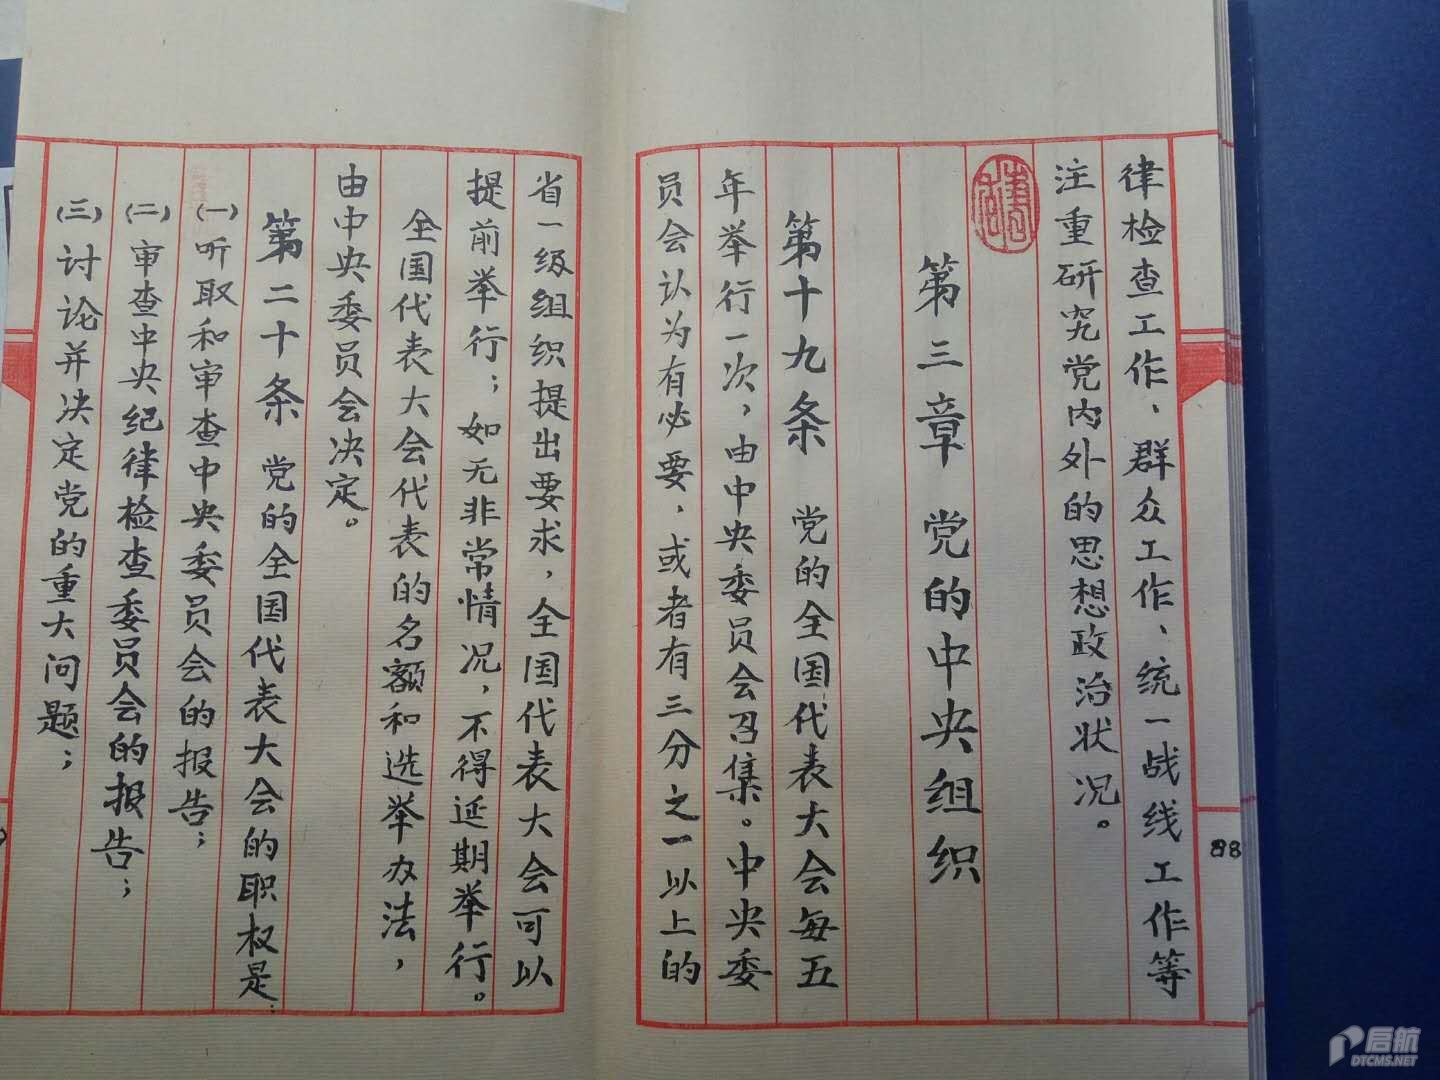 律检查工作、群众工作、统一战线工作等
注重研究党内外的思想政治状况。
第三章 党的中央组织
第十九条 党的全国代表大会每五
年举行一次，由中央委员会召集。中央委
员会认为有必要，或者有三分之一以上的
省一级组织提出要求，全国代表大会可以
提前举行；如无非常情况，不得延期举行。
全国代表大会代表的名额和选举办法，
由中央委员会决定。
第二十条 党的全国代表大会的职权是：
(一) 听取和审查中央委员会的报告；
(二) 审查中央纪律检查委员会的报告；
(三) 讨论并决定党的重大问题；
88
启航
DTCMS.NET